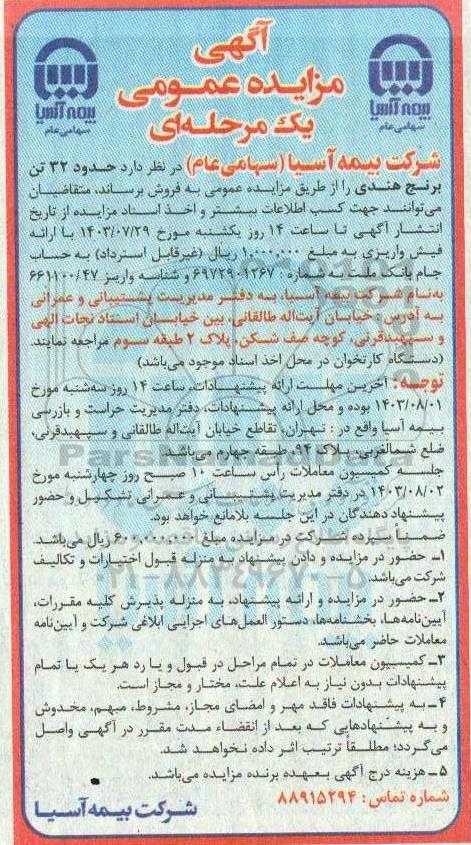 آگهی
مزایده عمومی
یک مرحله‌ای
بیمه آسیا
سهامی عام
بیمه آسیا
سهامی عام
شرکت بیمه آسیا (سهامی عام) در نظر دارد حدود ۳۲ تن
برنج هندی را از طریق مزایده عمومی به فروش برساند، متقاضیان
می‌توانند جهت کسب اطلاعات بیشتر و اخذ اسناد مزایده از تاریخ
انتشار آگهی تا ساعت ۱۴ روز یکشنبه مورخ ۱۴۰۳/۰۷/۲۹ با ارائه
فیش واریزی به مبلغ ۱.۰۰۰.۰۰۰ ریال (غیرقابل استرداد) به حساب
جام بانک ملت به شماره : ۶۹۷۲۹۰۱۲۶۷ و شناسه واریز ۶۶۱۱۰۰/۴۷
به‌نام شرکت بیمه آسیا، به دفتر مدیریت پشتیبانی و عمرانی
به آدرس : خیابان آیت‌اله طالقانی، بین خیابان استاد نجات الهی
و سپهبدقرنی، کوچه صف شکن، پلاک ۲ طبقه سوم مراجعه نمایند.
(دستگاه کارتخوان در محل اخذ اسناد موجود می‌باشد)
توجه: آخرین مهلت ارائه پیشنهادات، ساعت ۱۴ روز سه‌شنبه مورخ
۱۴۰۳/۰۸/۰۱ بوده و محل ارائه پیشنهادات، دفتر مدیریت حراست و بازرسی
بیمه آسیا واقع در : تهران، تقاطع خیابان آیت‌اله طالقانی و سپهبدقرنی،
ضلع شمالغربی، پلاک ۹۴، طبقه چهارم می‌باشد.
جلسه کمیسیون معاملات رأس ساعت ۱۰ صبح روز چهارشنبه مورخ
۱۴۰۳/۰۸/۰۲ در دفتر مدیریت پشتیبانی و عمرانی تشکیل و حضور
پیشنهاد دهندگان در این جلسه بلامانع خواهد بود.
ضمناً سپرده شرکت در مزایده مبلغ ۶۰۰.۰۰۰.۰۰۰ ریال می‌باشد.
۱ـ حضور در مزایده و دادن پیشنهاد به منزله قبول اختیارات و تکالیف
شرکت می‌باشد.
۲ـ حضور در مزایده و ارائه پیشنهاد، به منزله پذیرش کلیه مقررات،
آیین‌نامه‌ها، بخشنامه‌ها، دستور العمل‌های اجرایی ابلاغی شرکت و آیین‌نامه
معاملات حاضر می‌باشد.
۳ـ کمیسیون معاملات در تمام مراحل در قبول و یا رد هر یک یا تمام
پیشنهادات بدون نیاز به اعلام علت، مختار و مجاز است.
۴ـ به پیشنهادات فاقد مهر و امضای مجاز، مشروط، مبهم، مخدوش
و به پیشنهادهایی که بعد از انقضاء مدت مقرر در آگهی واصل
می‌گردد؛ مطلقا ترتیب اثر داده نخواهد شد.
۵ـ هزینه درج آگهی بعهده برنده مزایده می‌باشد.
شماره تماس: ۸۸۹۱۵۲۹۴
شرکت بیمه آسیا